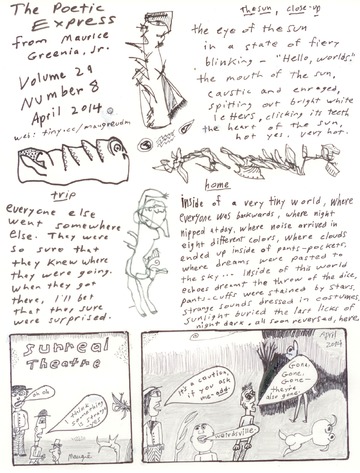 The Poetic
Express
from Maurice
Greenia, Jr.
Volume 29
Number 8
April 2014
web: tiny.cc/maugreudm
The sun, close-up
the eye of the sun
in a state of fiery
blinking - "Hello, worlds."
the mouth of the sun,
caustic and enraged,
spitting out bright white
letters, clicking its teeth
the heart of the sun,
hot yes. very hot.
trip
everyone else
went somewhere
else. They were
so sure that
they knew where
they were going.
when they got
there, I'll bet
that they sure
were surprised.
home
Inside of a very tiny world, where
everyone was backwards, where night
nipped at day, where noise arrived in
eight different colors, where clouds
ended up inside of pants-pockets,
where dreams were pasted to
the sky... Inside of this world
echoes dreamt the throw of the dice,
pants-cuffs were stained by stars,
strange sounds dressed in costumes.
sunlight buried the last licks of
night dark, all soon reversed, here
surreal
Theatre
oh oh
I think
something
is strange
yes
Maugre
April
2014
It's a caution,
if you ask
me-
weirdsville
Gone,
Gone,
Gone-
they're
also gone